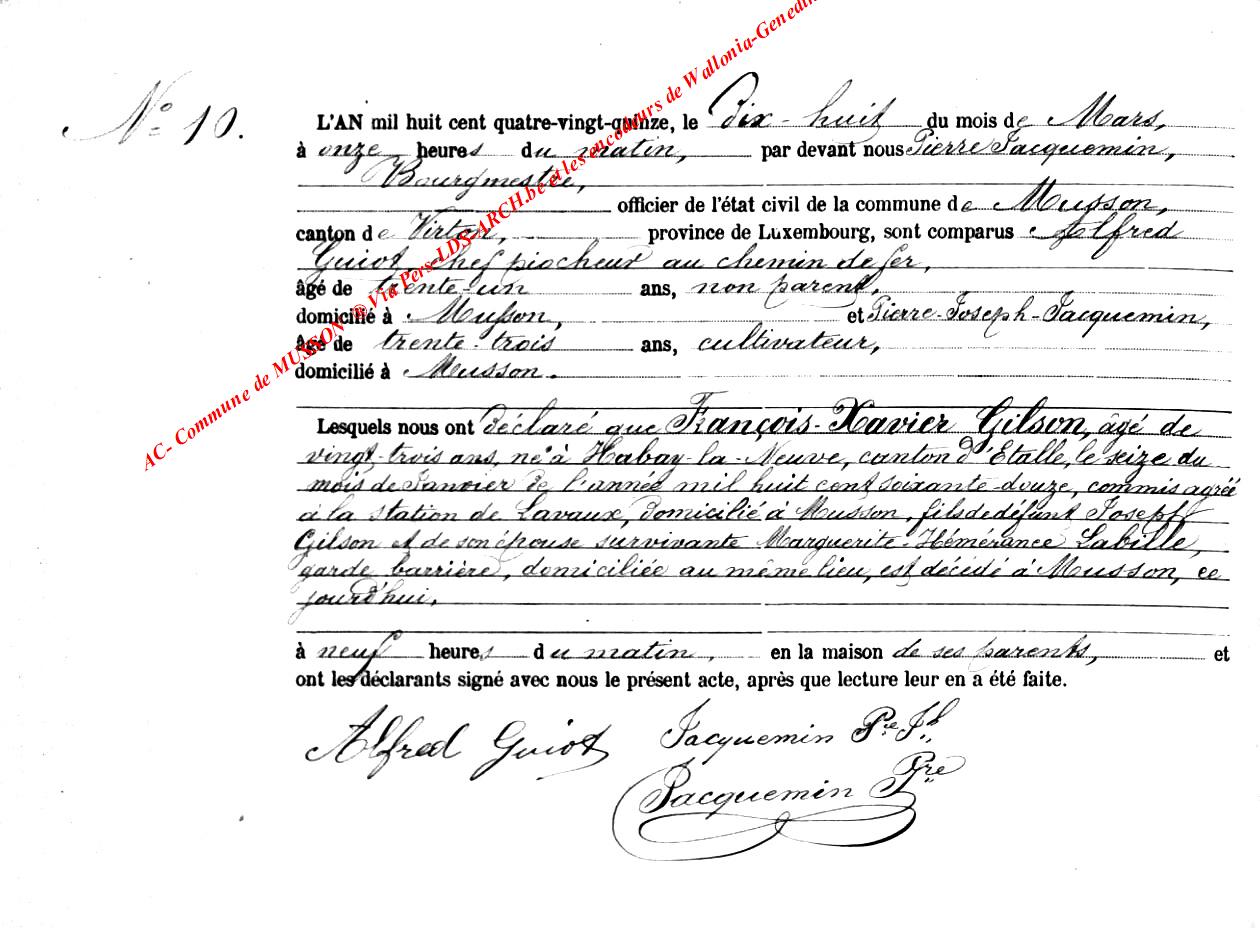 N° 10.
L'AN mil huit cent quatre-vingt-quinze, le Dix-huit du mois de Mars,
à onze heures du matin, par devant nous Pierre Jacquemin,
Bourgmestre,
officier de l'état civil de la commune de Musson,
canton de Virton, province de Luxembourg, sont comparus Alfred
Guiot, chef piocheur au chemin de fer,
âgé de trente-un ans, non parent,
domicilié à Musson, et Pierre-Joseph-Jacquemin,
âgé de trente-trois ans, cultivateur,
domicilié à Musson.
Lesquels nous ont déclaré que François-Xavier Gilson, âgé de
vingt-trois ans, né à Habay-la-Neuve, canton d'Etalle, le seize du
mois de Janvier de l'année mil huit cent soixante-douze, commis agréé
à la station de Lavaux, domicilié à Musson, fils de défunt Joseph
Gilson et de son épouse survivante Marguerite-Hémérance Labille,
garde barrière, domiciliée au même lieu, est décédé à Musson, ce
jourd'hui,
à neuf heures du matin, en la maison de ses parents, et
ont les déclarants signé avec nous le présent acte, après que lecture leur en a été faite.
Alfred Guiot Jacquemin Pre Jh
Jacquemin Pre
AC- Commune de MUSSON ® Via Pers-LDS-ARCH.be et les encodeurs de Wallonia-Genedin